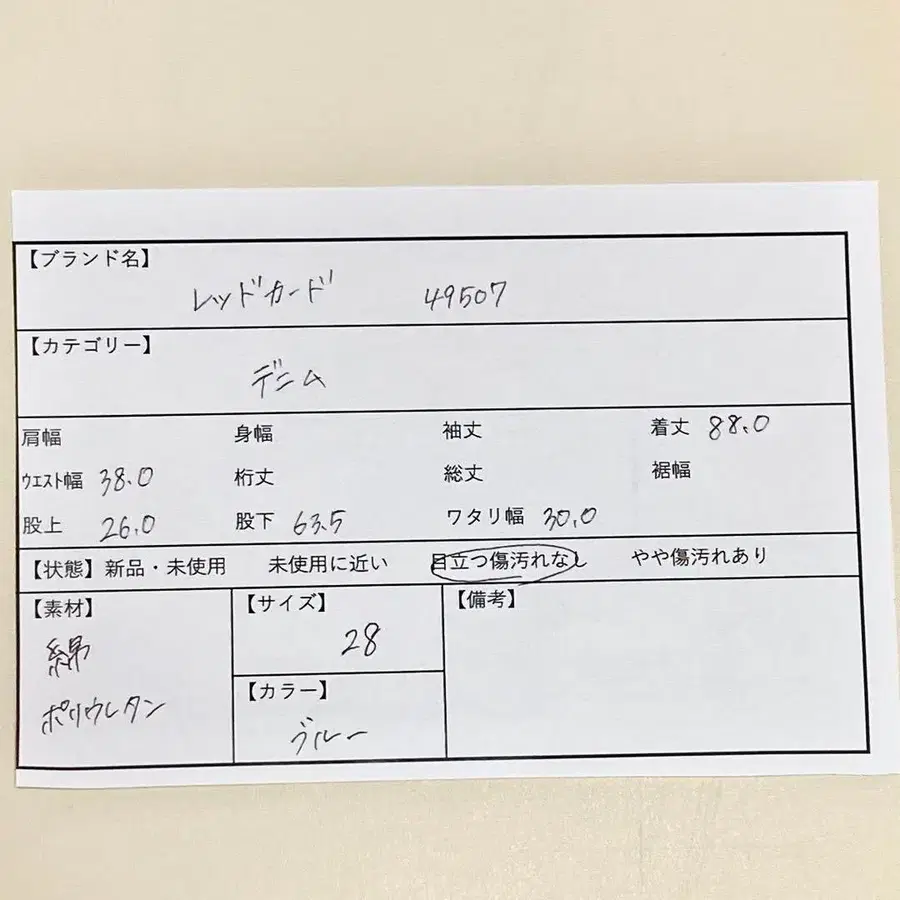 【ブランド名】
レッドカード 49507
【カテゴリー】
デニム
肩幅 身幅 袖丈 着丈 88.0
ウエスト幅 38.0 裄丈 総丈 裾幅
股上 26.0 股下 63.5 ワタリ幅 30.0
【状態】新品・未使用 未使用に近い 目立つ傷汚れなし やや傷汚れあり
【素材】 【サイズ】 【備考】
綿 28
【カラー】
ポリウレタン ブルー